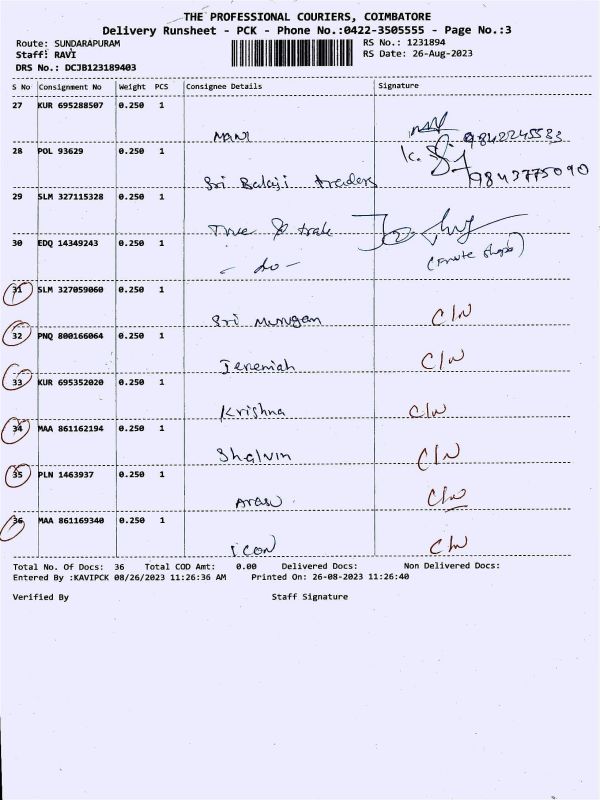 THE PROFESSIONAL COURIERS, COIMBATORE
Delivery Runsheet - PCK - Phone No.:0422-3505555 - Page No.:3
Route: SUNDARAPURAM
Staff: RAVI
DRS No.: DCJB123189403
RS No.: 1231894
RS Date: 26-Aug-2023
S No Consignment No Weight PCS Consignee Details Signature
27 KUR 695288507 0.250 1
MANI 9842245533
28 POL 93629 0.250 1
Sri Balaji traders K. 9843775090
29 SLM 327115328 0.250 1
Tree & trak
30 EDQ 14349243 0.250 1
- do -
31 SLM 327059060 0.250 1
Sri Murugan C/N
32 PNQ 800166064 0.250 1
Jeremiah C/N
33 KUR 695352020 0.250 1
Krishna C/N
34 MAA 861162194 0.250 1
Shalvin C/N
35 PLN 1463937 0.250 1
C/N
36 MAA 861169340 0.250 1
icon C/N
Total No. Of Docs: 36 Total COD Amt: 0.00 Delivered Docs: Non Delivered Docs:
Entered By :KAVIPCK 08/26/2023 11:26:36 AM Printed On: 26-08-2023 11:26:40
Verified By Staff Signature